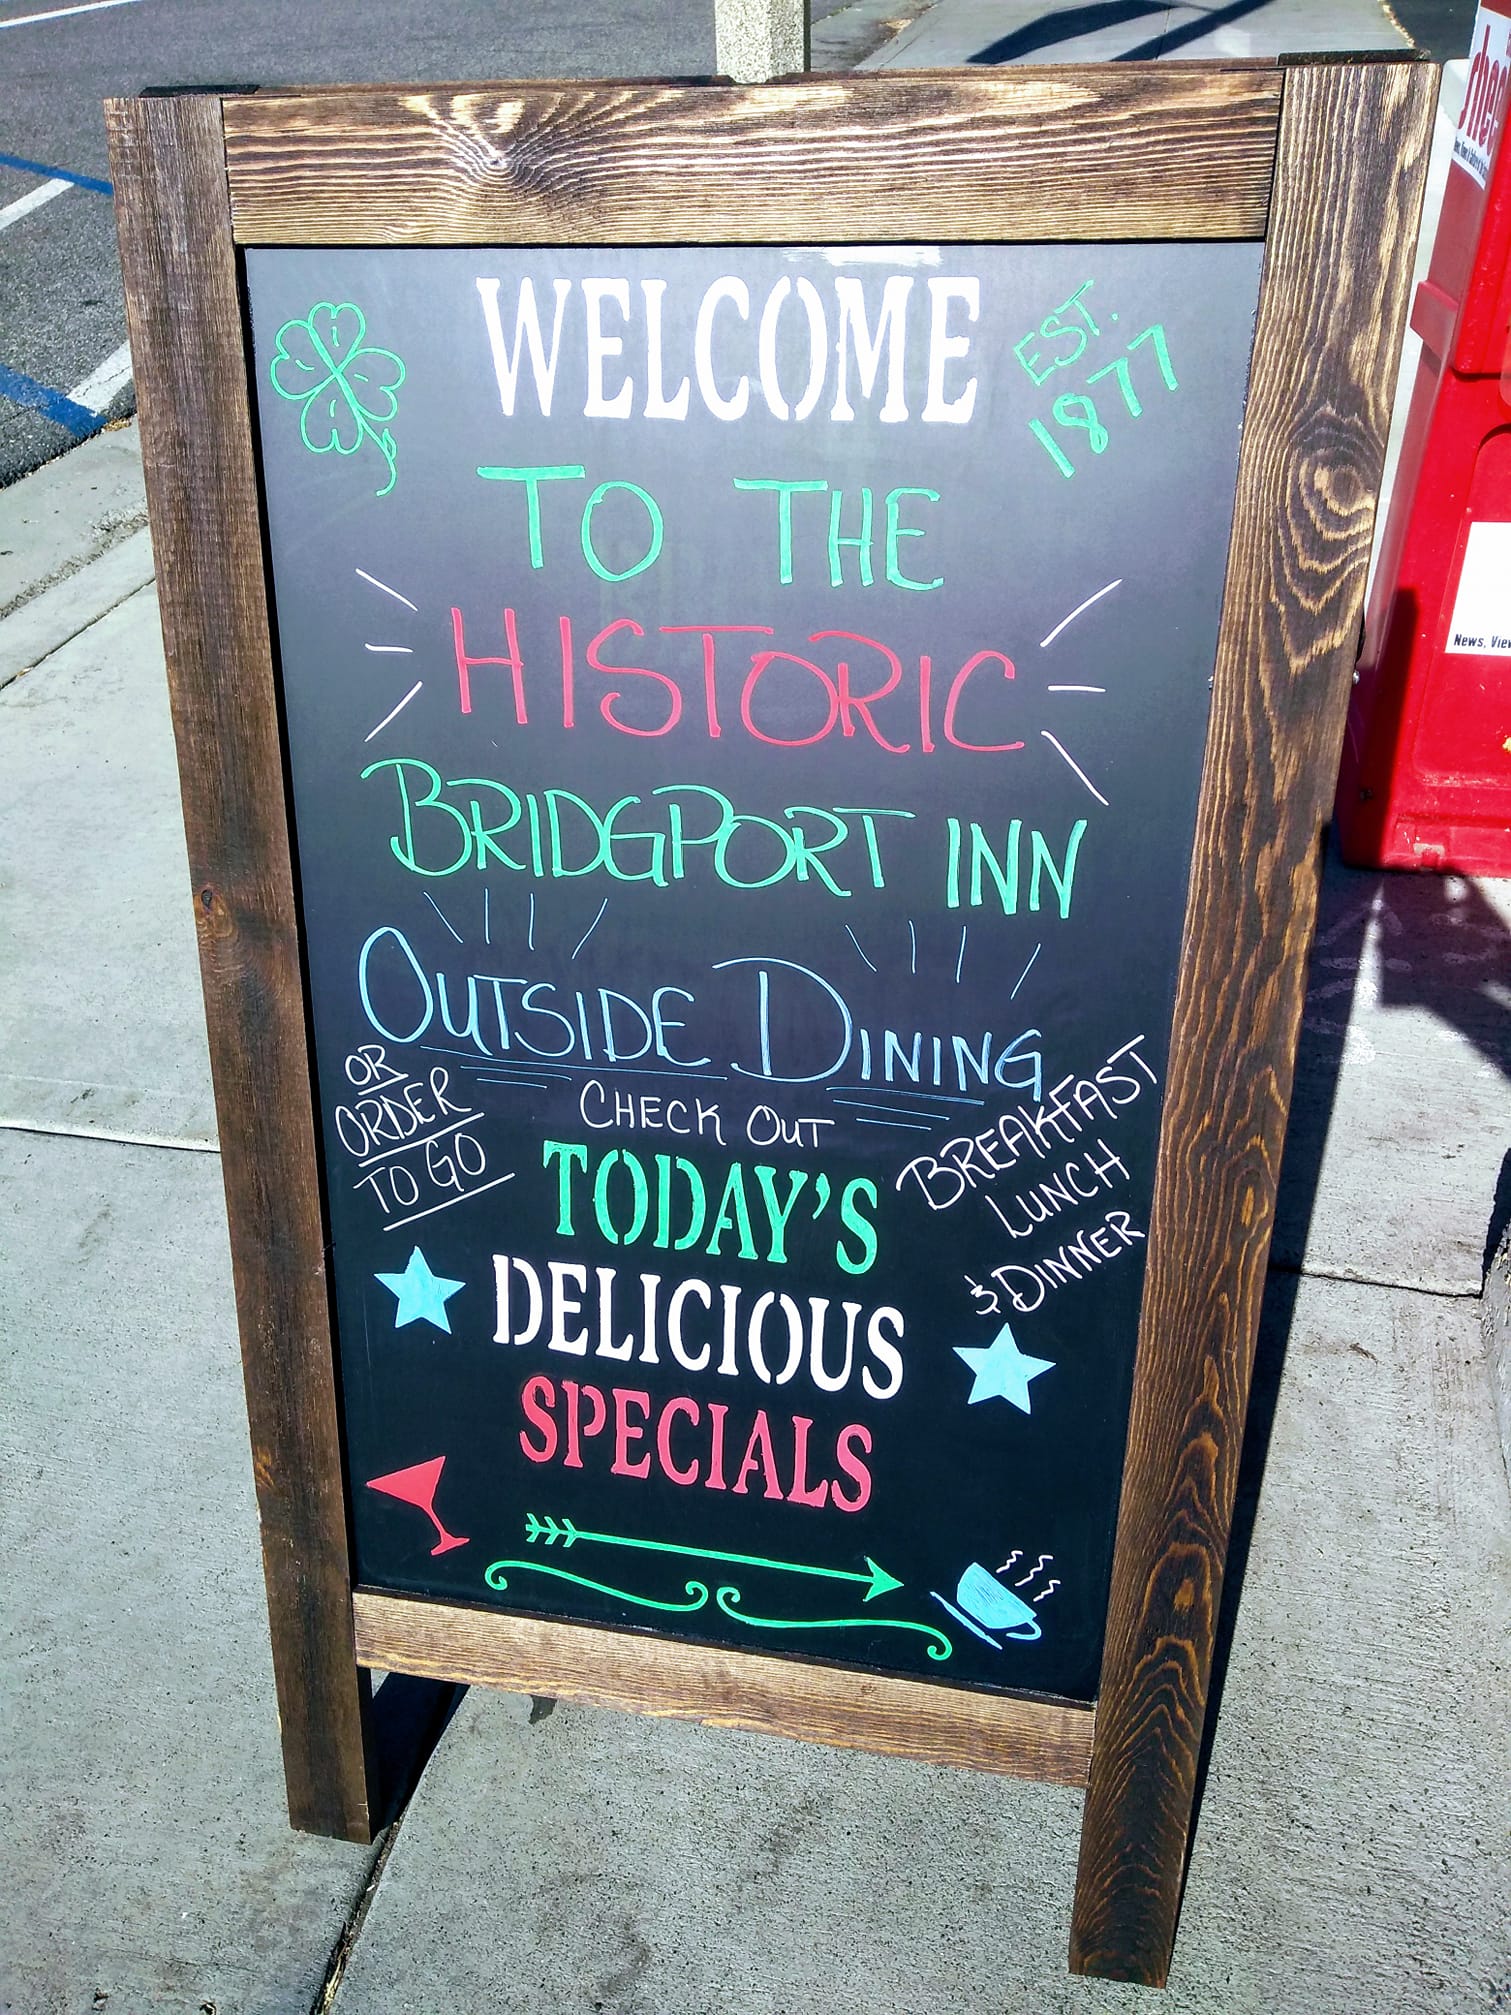 WELCOME
EST.
1877
TO THE
HISTORIC
BRIDGPORT INN
OUTSIDE DINING
OR
ORDER
TO GO
CHECK OUT
BREAKFAST
LUNCH
& DINNER
TODAY'S
DELICIOUS
SPECIALS
News, Vie